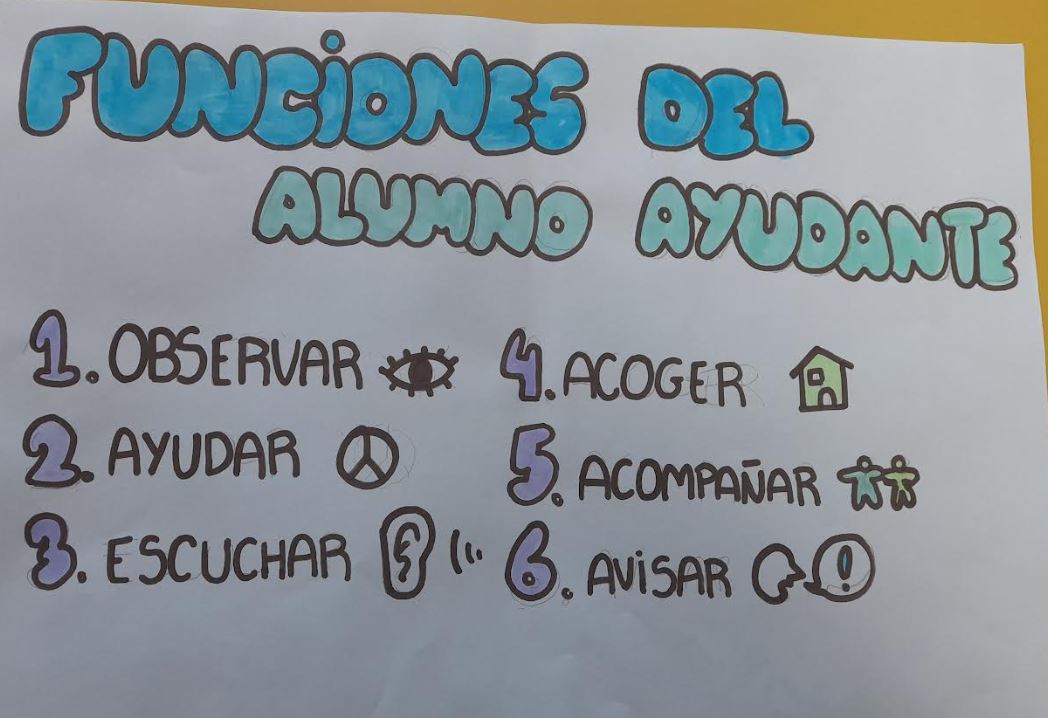 FUNCIONES DEL
ALUMNO AYUDANTE
1. OBSERVAR
2. AYUDAR
3. ESCUCHAR
4. ACOGER
5. ACOMPAÑAR
6. AVISAR
!